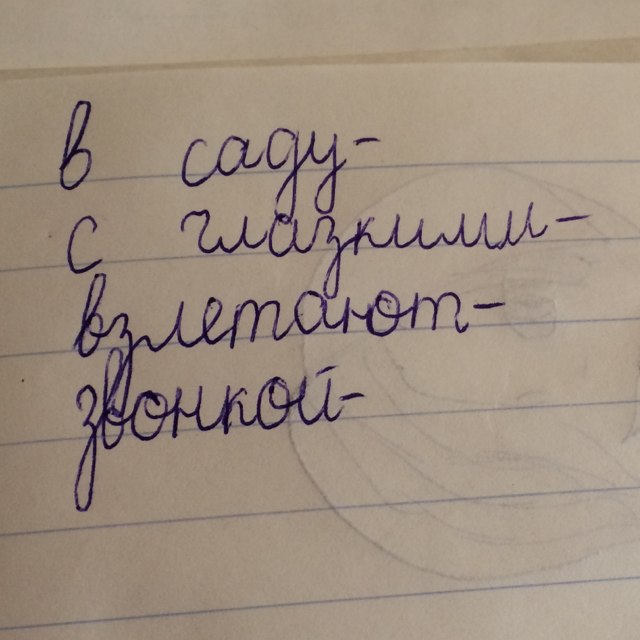 в саду-
с глазкими-
взлетают-
звонкой-